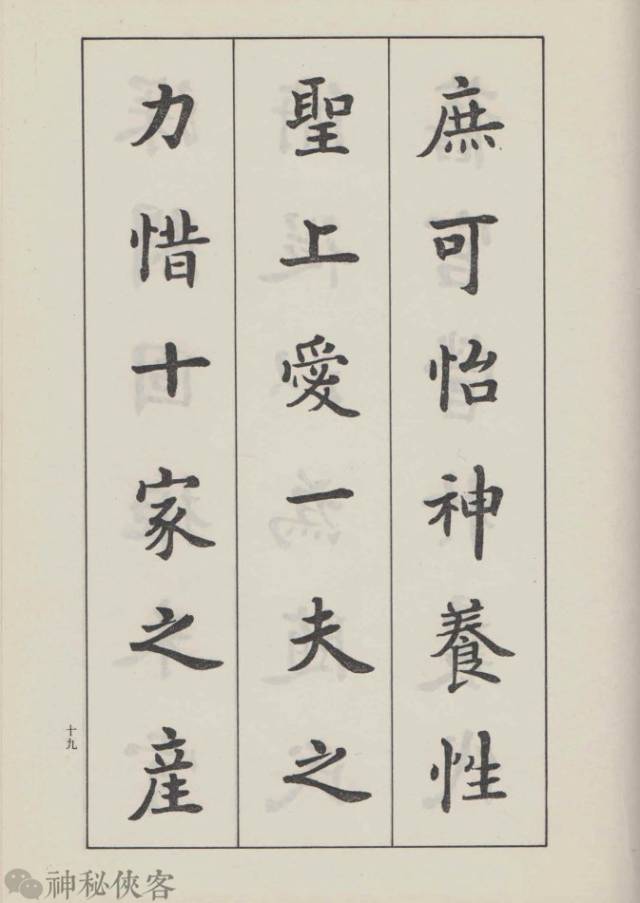 庶可怡神養性
聖上愛一夫之
力惜十家之産
十九
神秘俠客